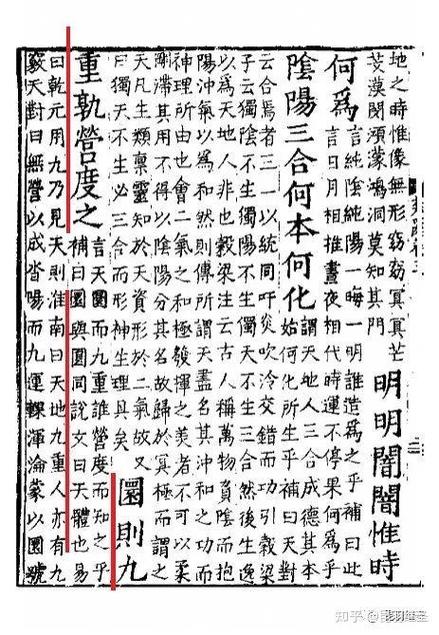 地之時惟像無形窈窈冥冥芒
芠漠閔澒蒙鴻洞莫知其門
明明闇闇惟時
何為
言純陰純陽一晦一明誰造為之乎補曰此
言日月相推晝夜相代時運不停果何為乎
陰陽三合何本何化
謂天地人三合成德其本
始何化所生乎補曰天對
云合焉者三一以統同吁炎吹冷交錯而功引穀梁
子云獨陰不生獨陽不生獨天不生三合然後生逸
以為天地人非也穀梁注云古人稱萬物負陰而抱
陽沖氣以為和然則傳所謂天蓋名其沖和之功而
神理所由也會二氣之和極發揮之美者不可以柔
剛滯其用不得以陰陽分其名故歸於冥極而謂之
天凡生類稟靈知於天資形於二氣故又
曰獨天不生必三合而形神生理具矣
圜則九
重孰營度之
言天圜而九重誰營度而知之乎
補曰圜與圓同說文曰天體也易
曰乾元用九乃見天則淮南曰天地九重人亦有九
竅天對曰無營以成沓陽而九運輠渾淪蒙以圜號
知乎